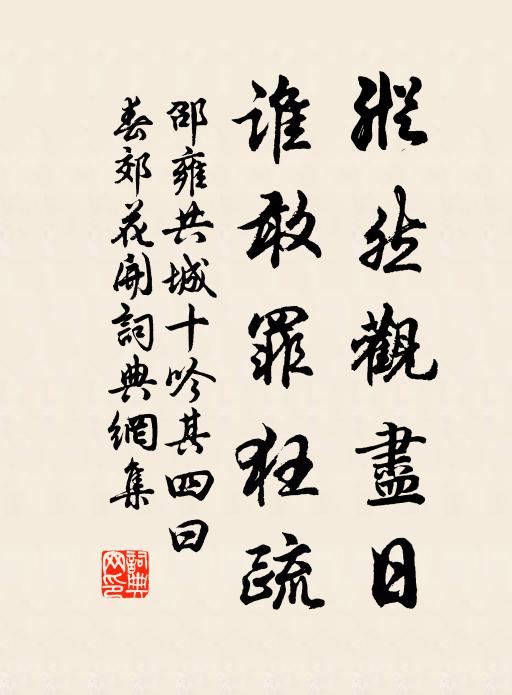 縱然觀盡日
誰敢罪狂疏
邵雍共城十吟其四曰
春郊花開詞典網集
詞典網印